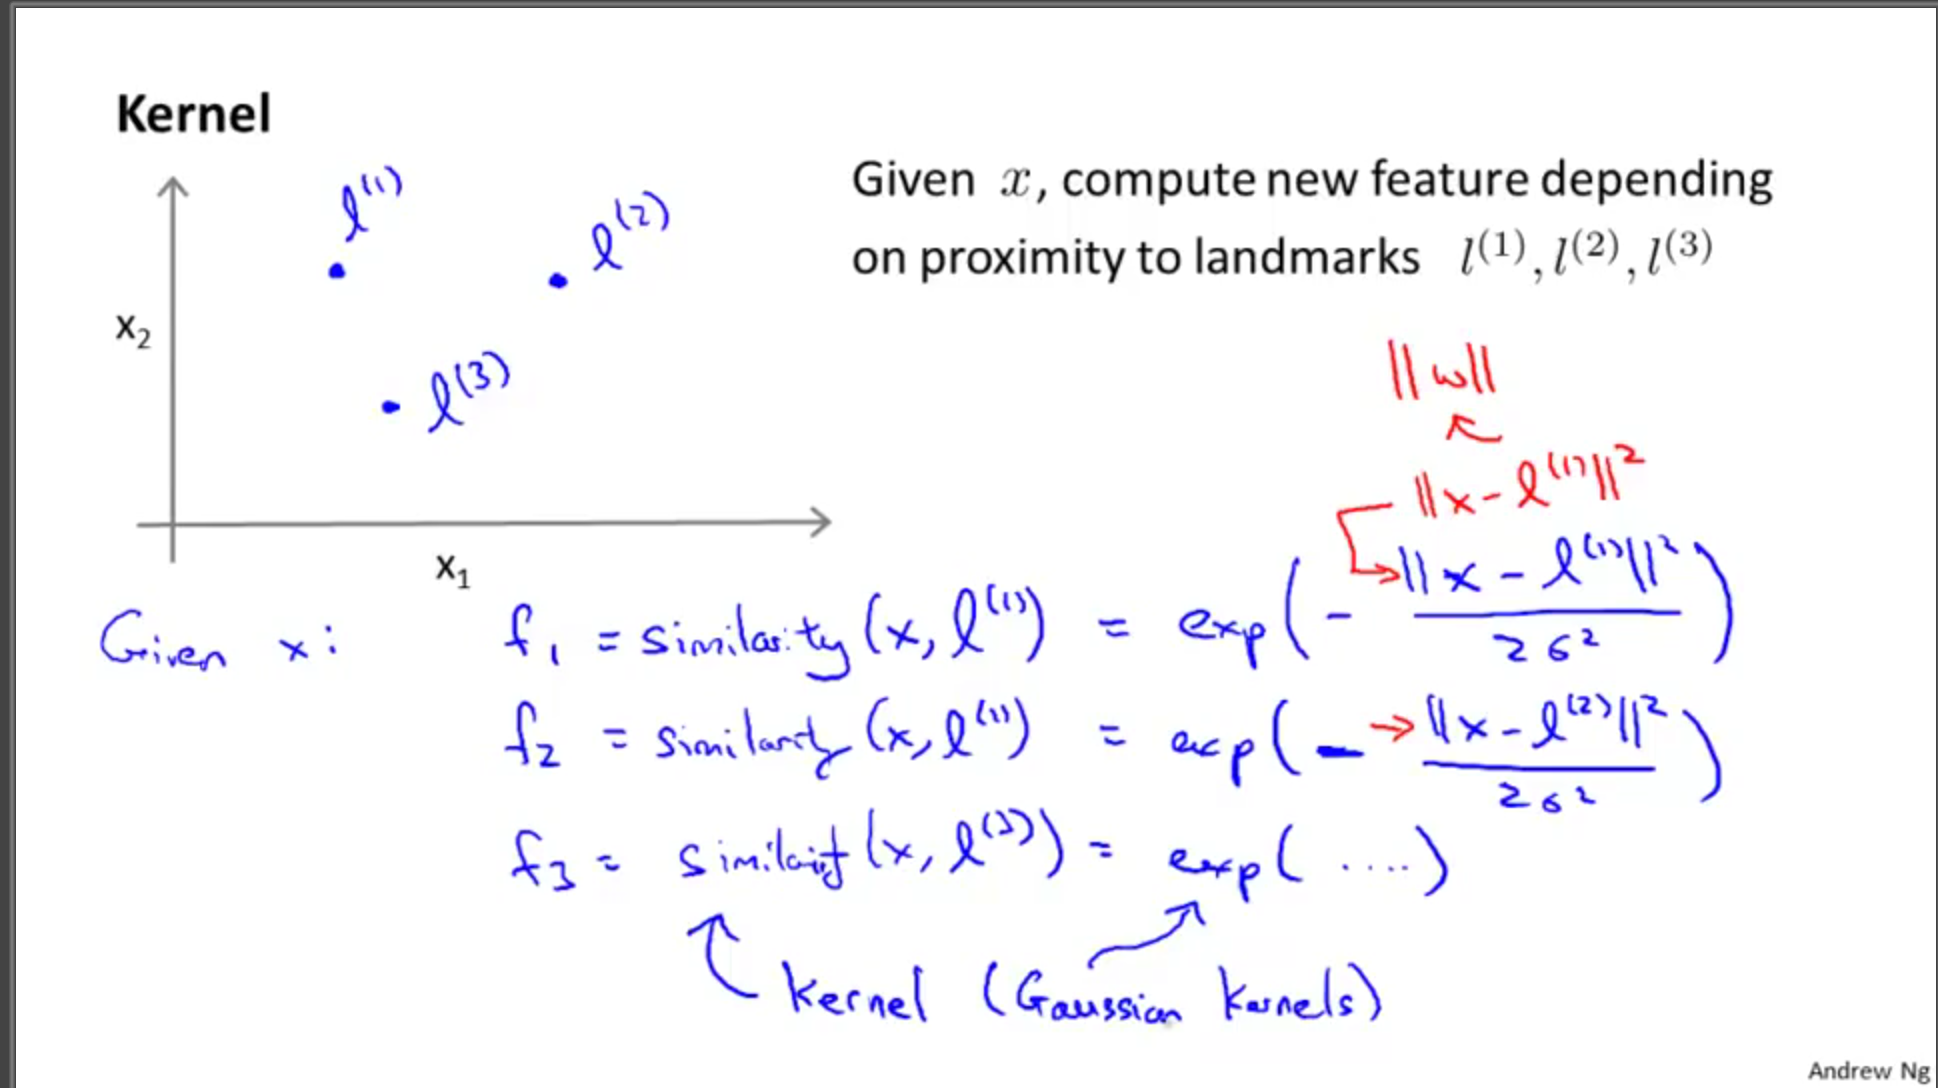 Kernel
l^(1)
l^(2)
Given x, compute new feature depending
on proximity to landmarks l^(1), l^(2), l^(3)
x₂
l^(3)
||w||
||x - l^(1)||²
x₁
Given x: f₁ = similarity(x, l^(1)) = exp(- ||x - l^(1)||² / 2σ²)
f₂ = similarity(x, l^(1)) = exp(- ||x - l^(2)||² / 2σ²)
f₃ = similarity(x, l^(3)) = exp(....)
kernel (Gaussian kernels)
Andrew Ng